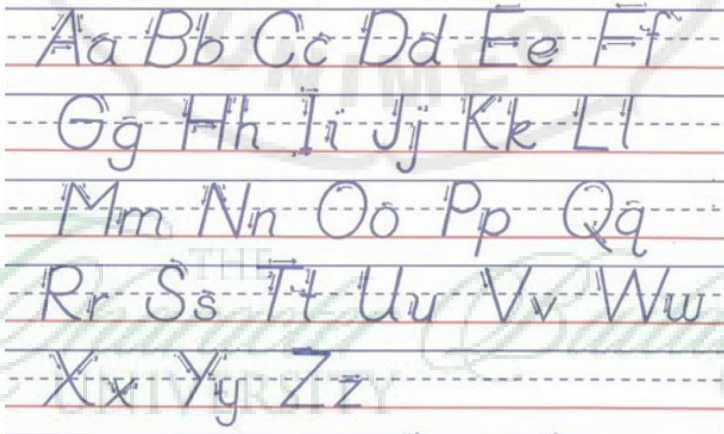 Aa Bb Cc Dd Ee Ff
Gg Hh Ii Jj Kk Ll
Mm Nn Oo Pp Qq
Rr Ss Tt Uu Vv Ww
Xx Yy Zz
THE
UNIVERSITY